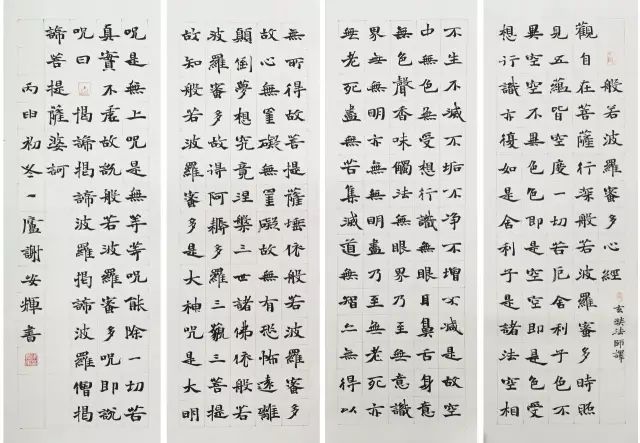 般若波羅蜜多心經
玄奘法師譯
觀自在菩薩行深般若波羅蜜多時照
見五蘊皆空度一切苦厄舍利子色不
異空空不異色色即是空空即是色受
想行識亦復如是舍利子是諸法空相
不生不滅不垢不淨不增不減是故空
中無色無受想行識無眼耳鼻舌身意
無色聲香味觸法無眼界乃至無意識
界無無明亦無無明盡乃至無老死亦
無老死盡無苦集滅道無智亦無得以
無所得故菩提薩埵依般若波羅蜜多
故心無罣礙無罣礙故無有恐怖遠離
顛倒夢想究竟涅槃三世諸佛依般若
波羅蜜多故得阿耨多羅三藐三菩提
故知般若波羅蜜多是大神呪是大明
呪是無上呪是無等等呪能除一切苦
真實不虛故說般若波羅蜜多呪即說
呪曰 揭諦揭諦波羅揭諦波羅僧揭
諦菩提薩婆訶
丙申初冬一廬謝安輝書